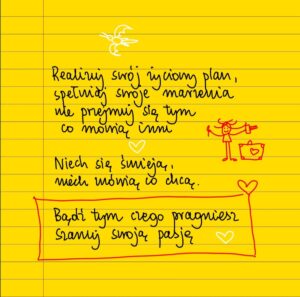 Realizuj swój życiowy plan,
spełniaj swoje marzenia
nie przejmuj się tym
co mówią inni
Niech się śmieją,
niech mówią co chcą.
Bądź tym czego pragniesz
szanuj swoją pasję